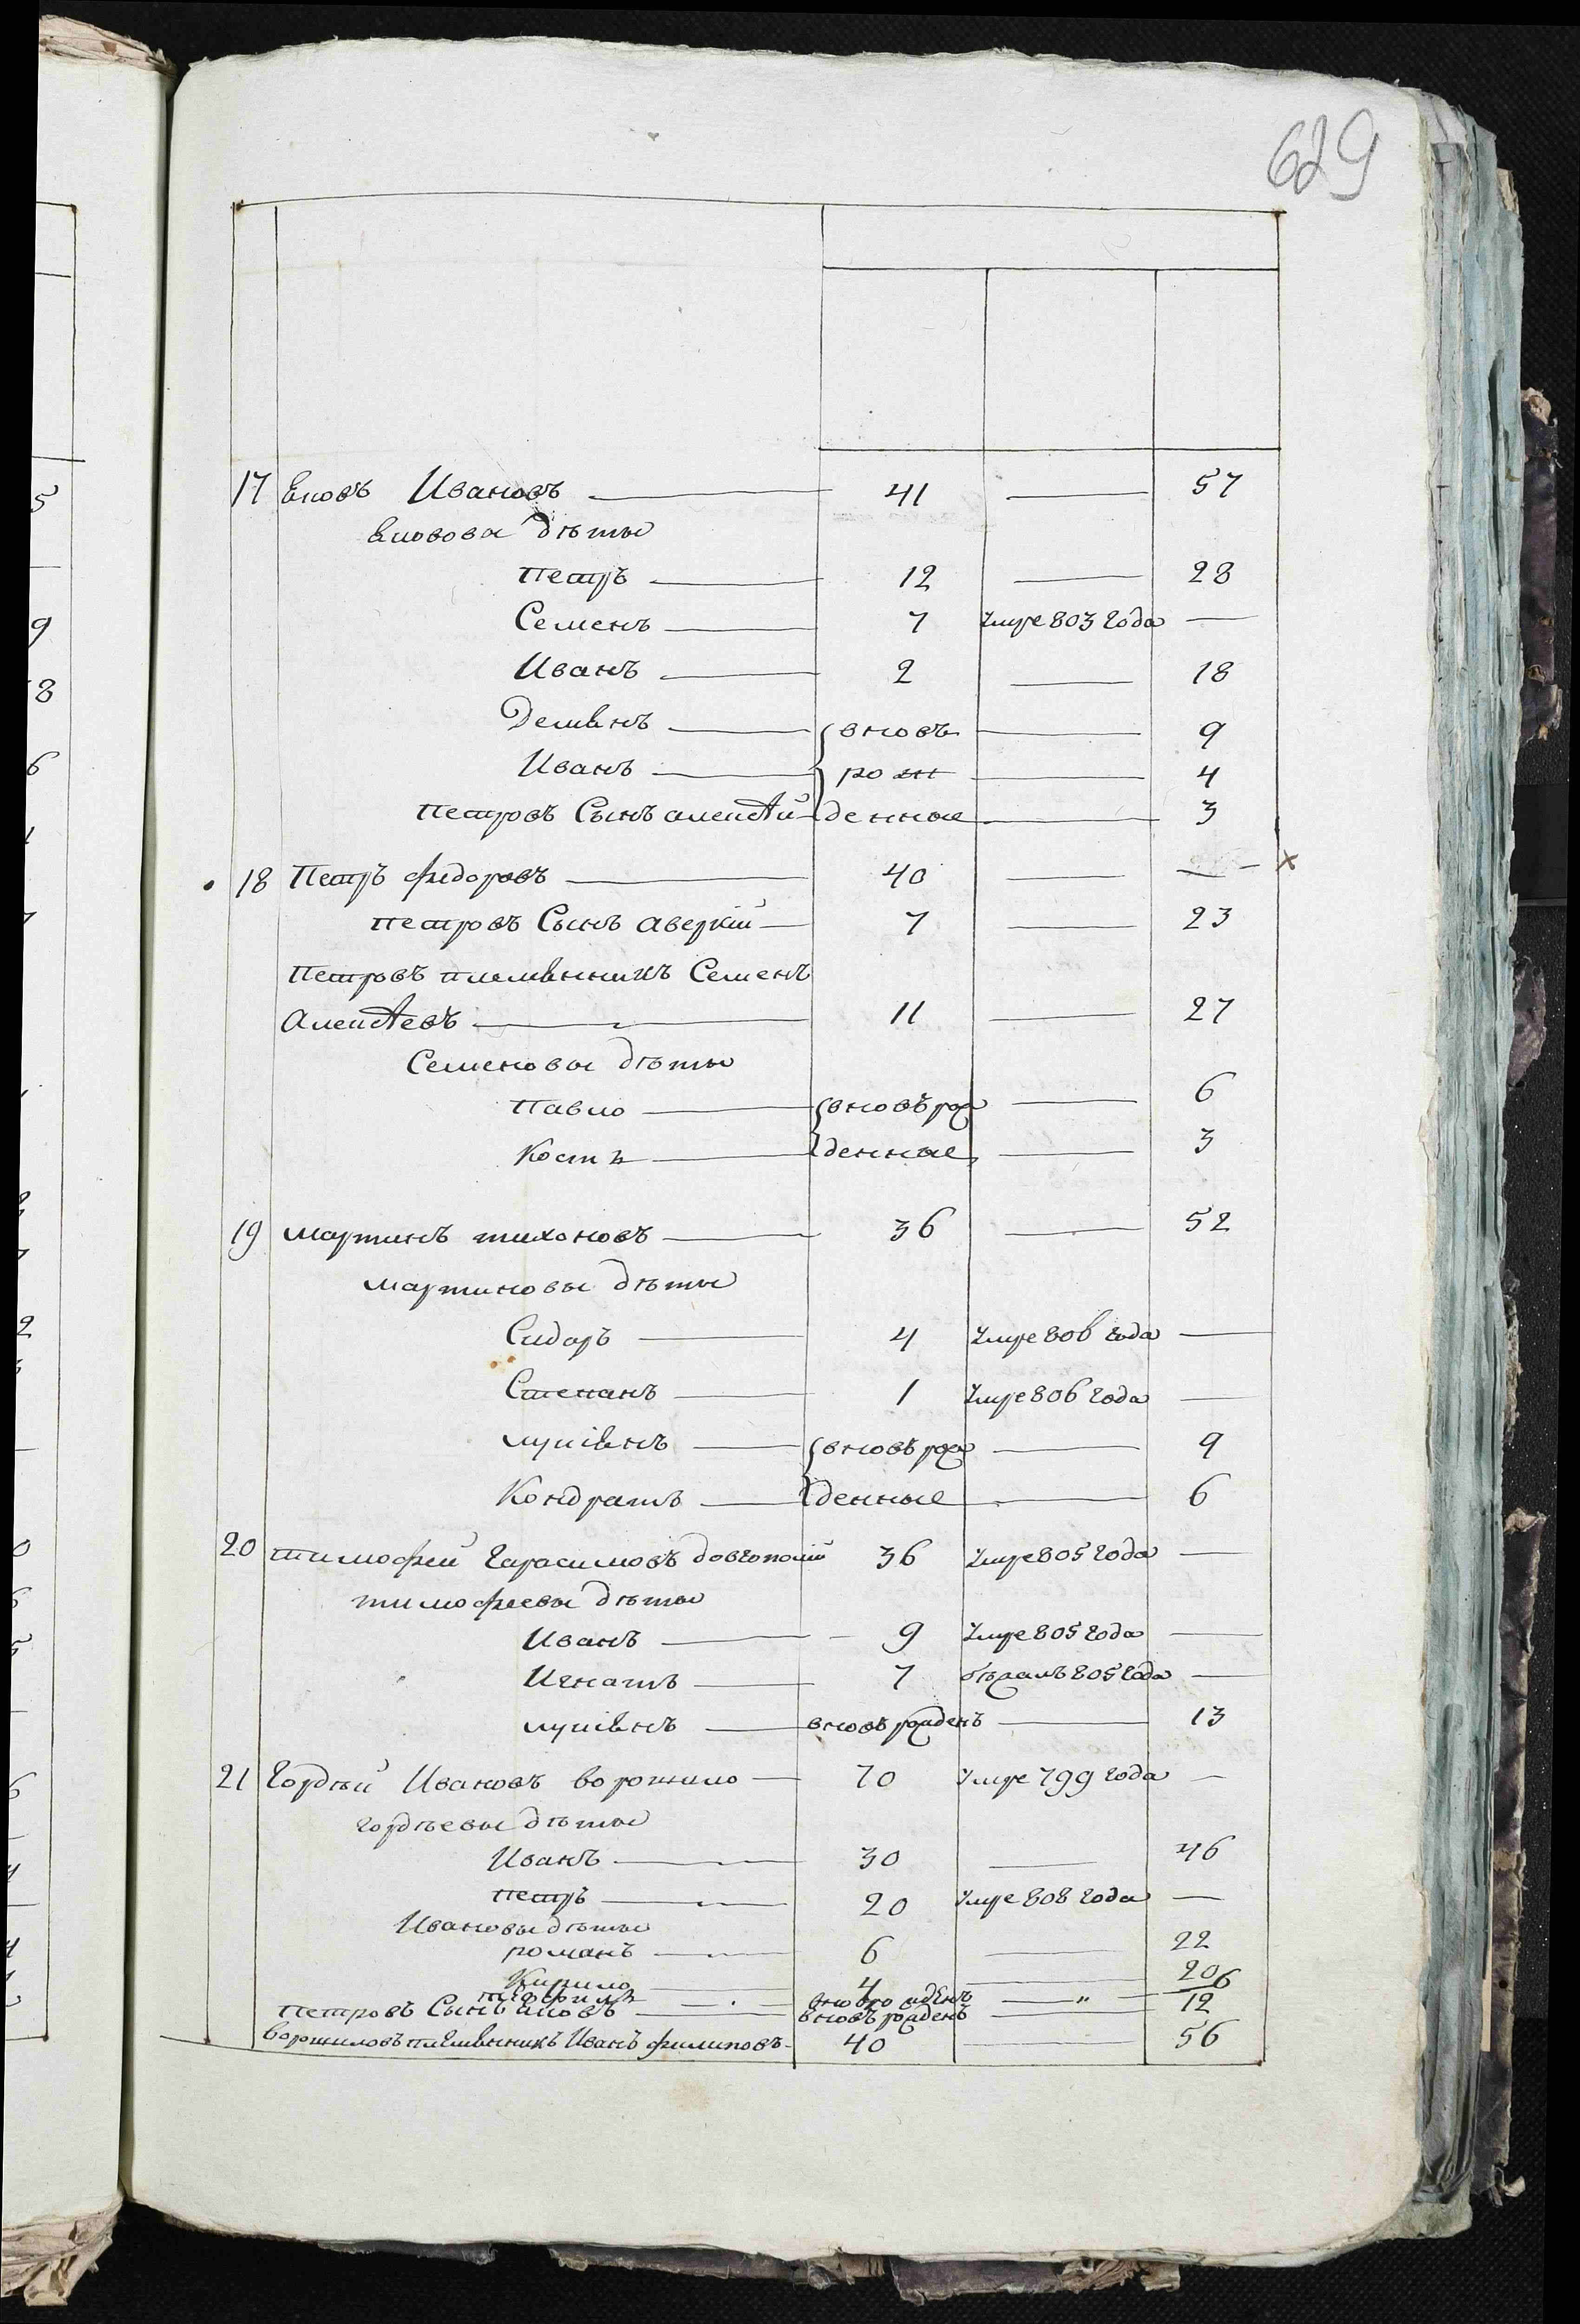 629
17 Яковъ Ивановъ — 41 — 57
Якововы дѣти
Петръ — 12 — 28
Семенъ — 7 умре 803 года —
Иванъ — 2 — 18
Демянъ — вновь — 9
Иванъ — рож — 4
Петровъ Сынъ алексѣй — денные — 3
18 Петръ федоровъ — 40 — — ×
петровъ Сынъ аверкій — 7 — 23
Петровъ племянникъ Семенъ
Алексѣевъ — 11 — 27
Семеновы дѣти
Павло — вновь рож — 6
Костя — денные — 3
19 мартинъ тихоновъ — 36 — 52
мартиновы дѣти
Сидоръ — 4 умре 806 года —
Степанъ — 1 умре 806 года —
лукіянъ — вновь рож — 9
Кондратъ — денные — 6
20 тимофей Гарасимовъ довгополій 36 умре 805 года —
тимофеевы дѣти
Иванъ — 9 умре 805 года —
Игнатъ — 7 бѣжалъ 805 года —
лукіянъ — вновь рожденъ — 13
21 Гордѣй Ивановъ ворожило — 70 умре 799 года —
гордѣевы дѣти
Иванъ — 30 — 46
петръ — 20 умре 808 года —
Ивановы дѣти
романъ — 6 — 22
Кирило — 4 — 20
— — 6
Петровъ Сынъ яковъ — вновь рожденъ — 12
Ворожиловъ племянникъ Иванъ филиповъ — 40 — 56